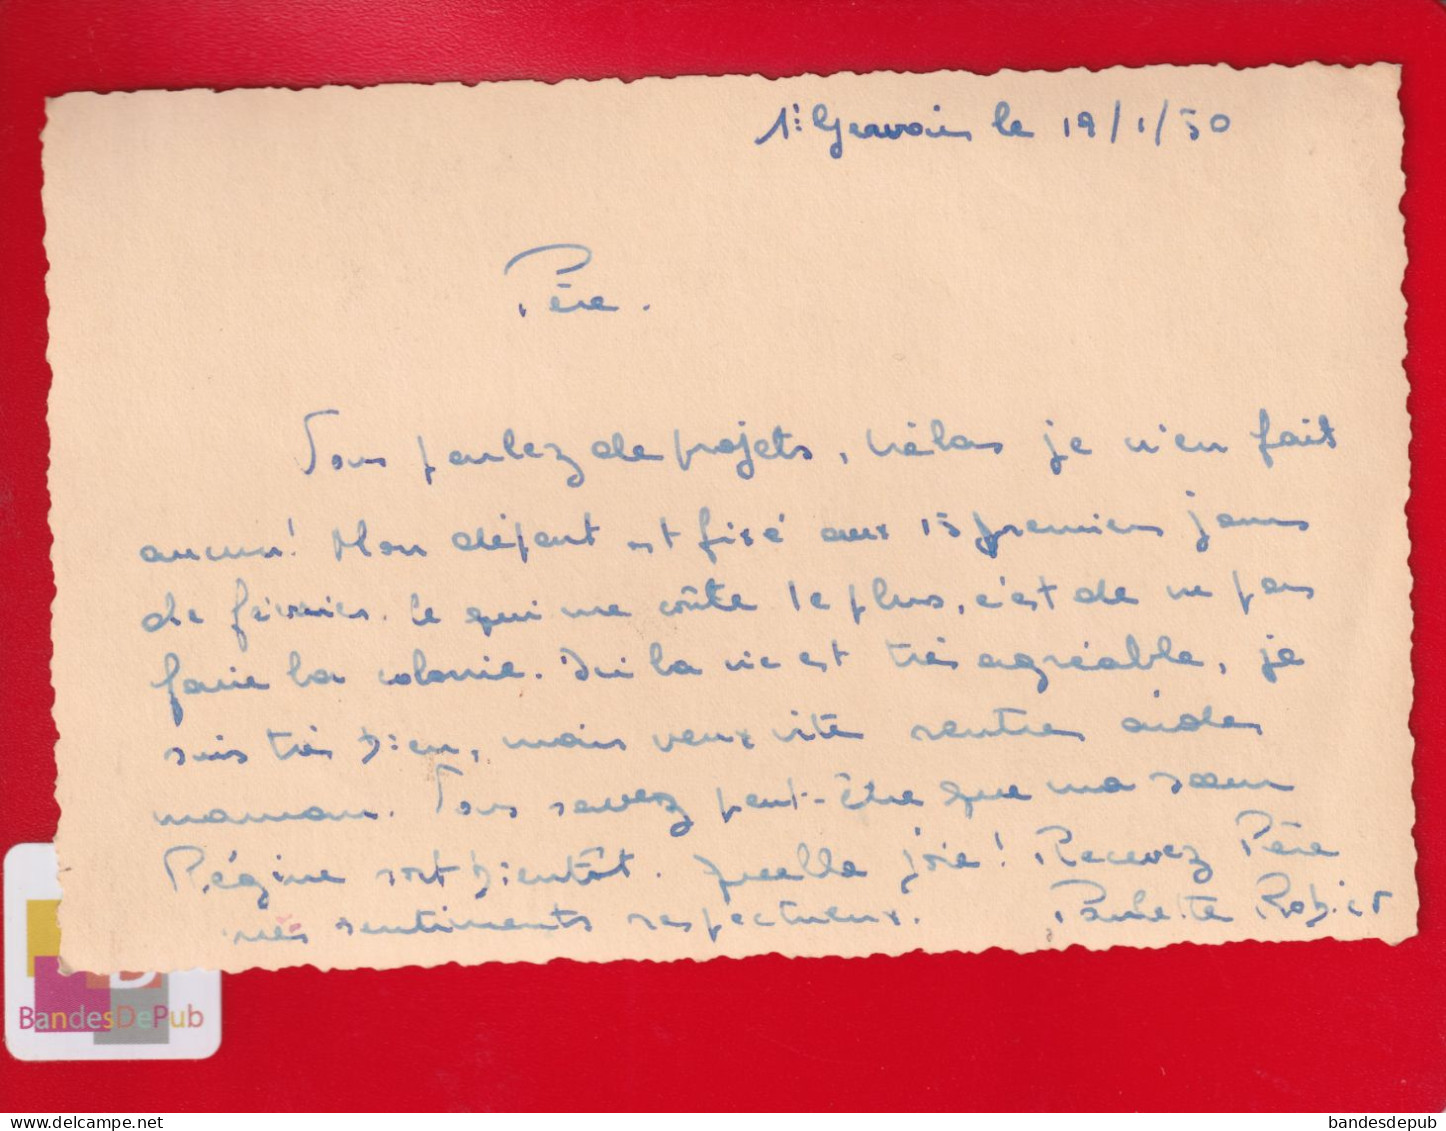 St Gervais le 19/1/50
Père.
Vous parlez de projets, hélas je n'en fait
aucun! Mon départ est fixé aux 15 premiers jours
de février. Ce qui me coûte le plus, c'est de ne pas
faire la colonie. Ici la vie est très agréable, je
suis très bien, mais veux vite rentrer aider
maman. Vous savez peut-être que ma sœur
Régine sort bientôt. Quelle joie! Recevez Père
mes sentiments respectueux. Paulette Robiet
BandesDePub
bandesdepub.com